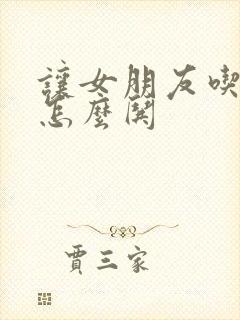 讓女朋友喫
怎麼開
賈三家